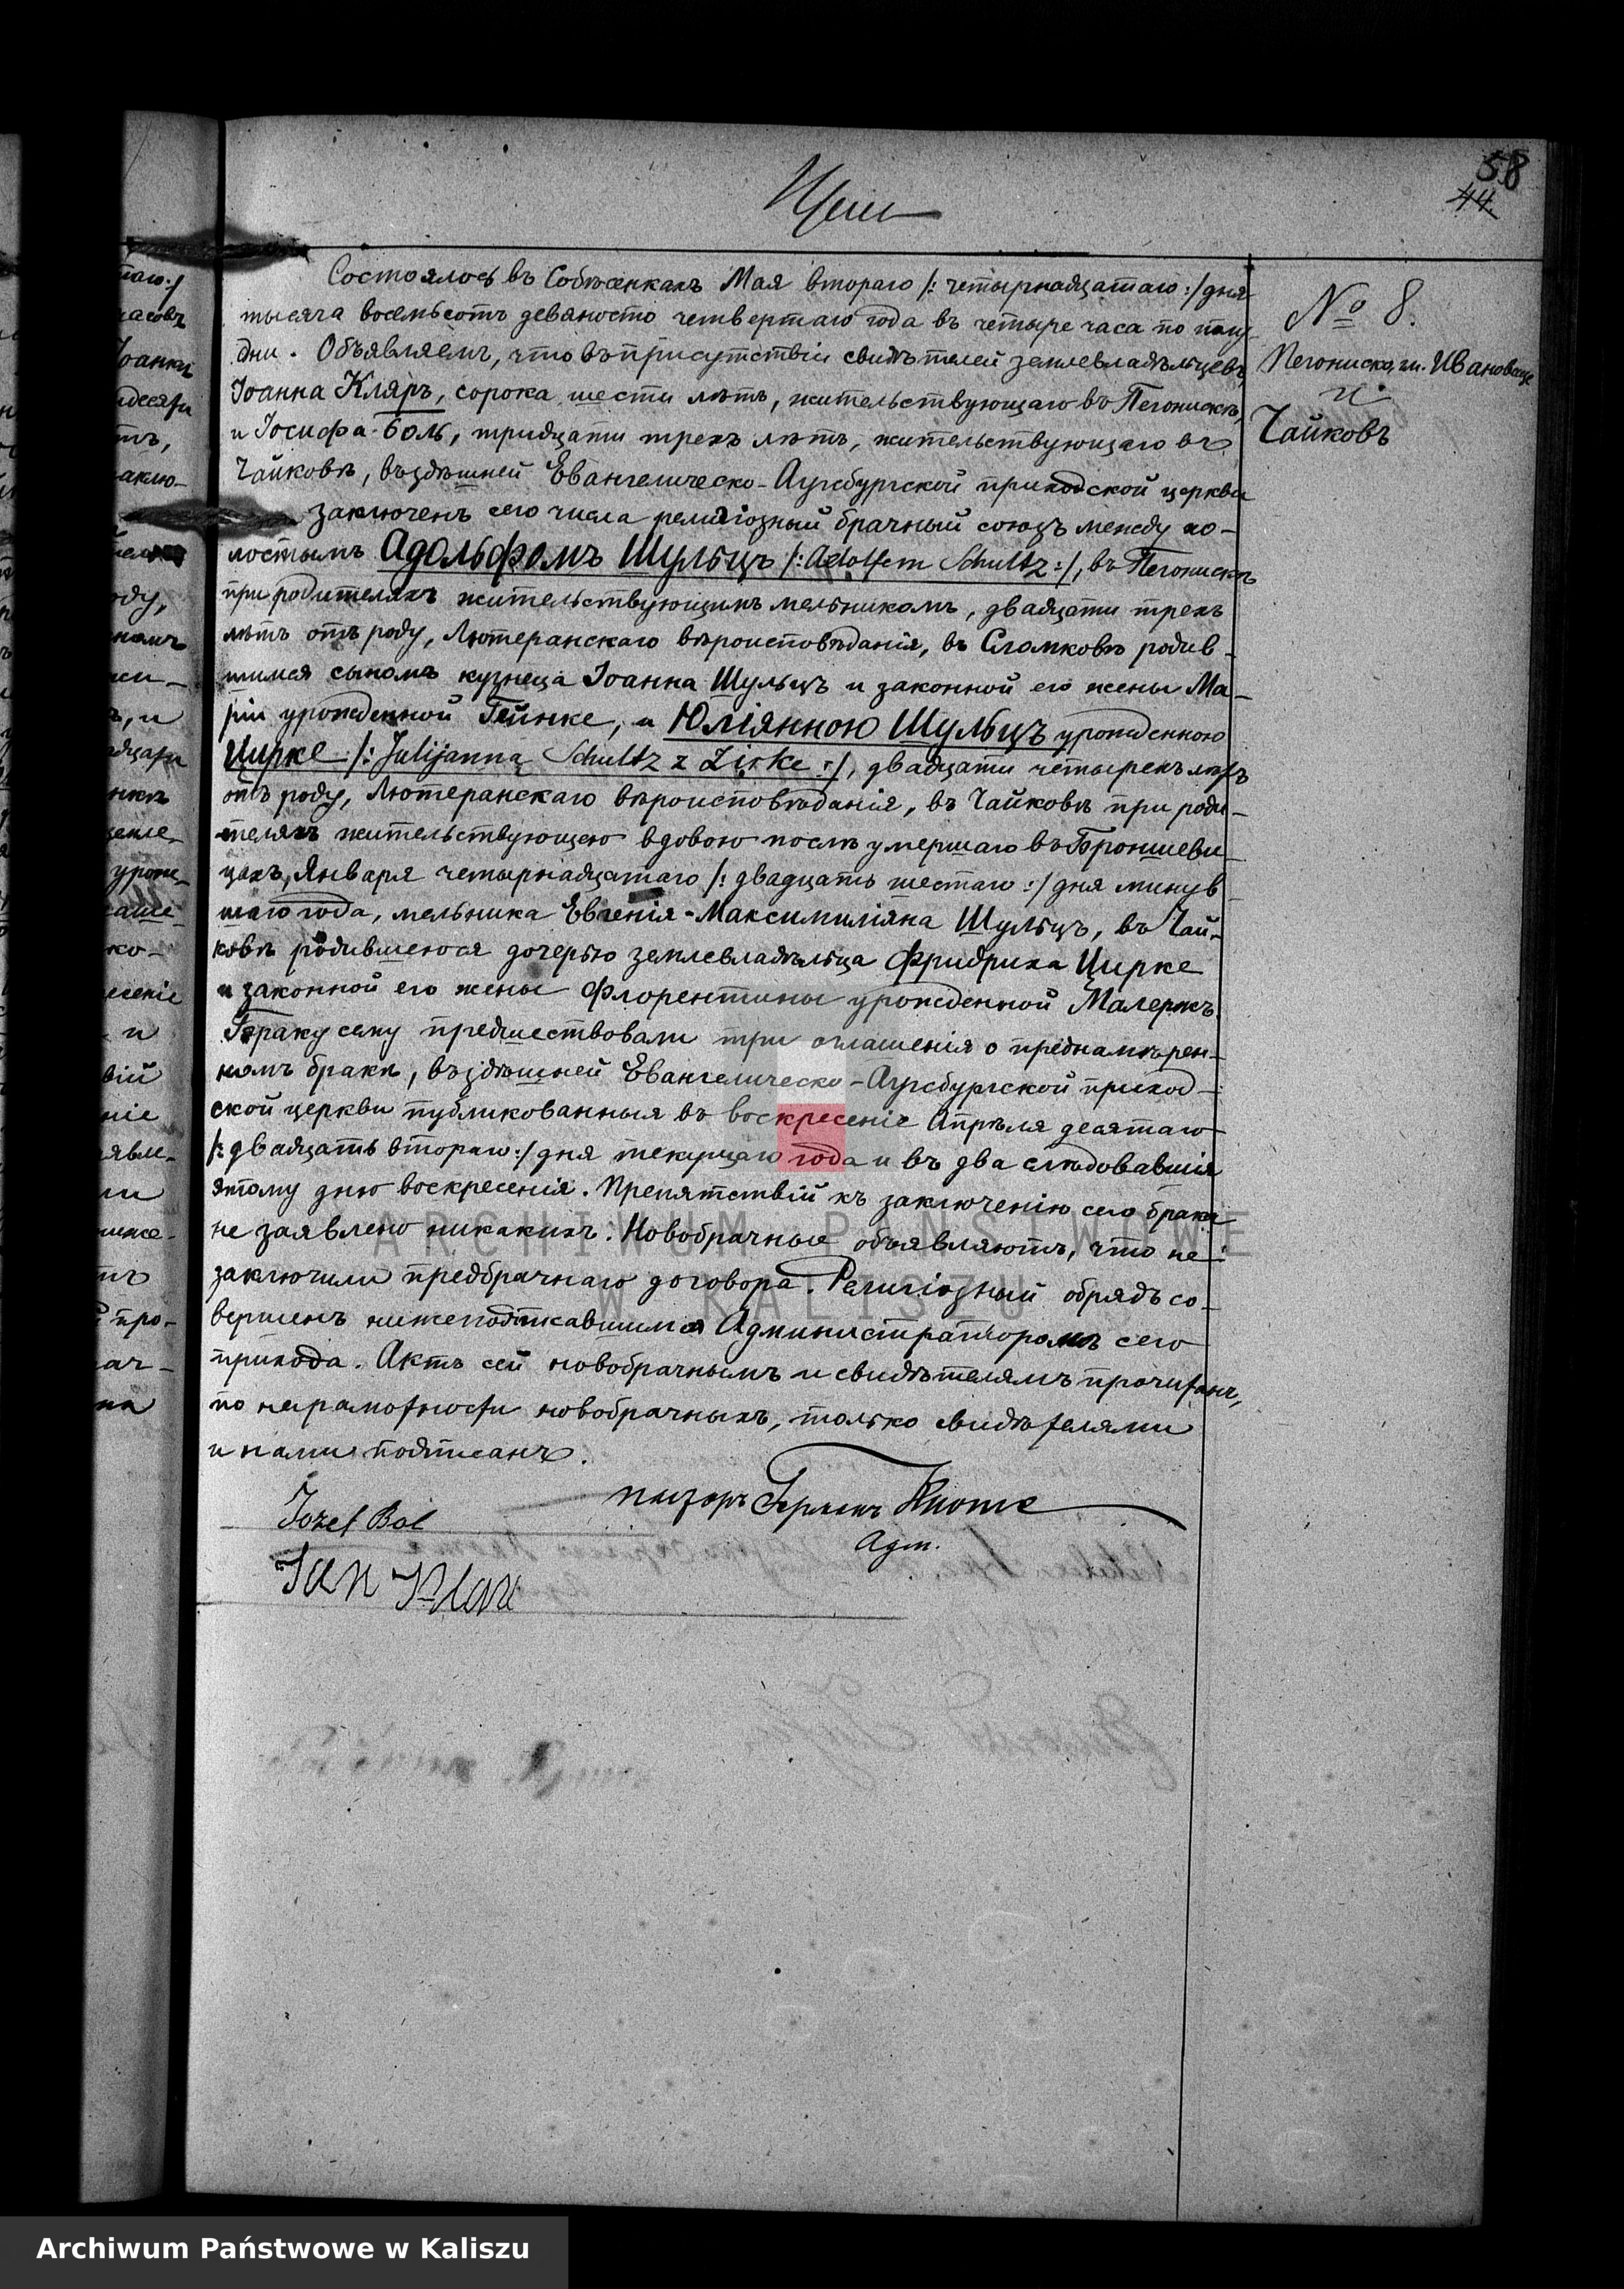 58
44
Состоялось въ Собѣсенкахъ Мая втораго /: четырнадцатаго :/ дня
тысяча восемьсотъ девяносто четвертаго года въ четыре часа по полу
дни. Объявляемъ, что въ присутствіи свидѣтелей землевладѣльцевъ
Іоанна Кляръ, сорока шести лѣтъ, жительствующаго въ Пегонискѣ,
и Іосифа Боль, тридцати трехъ лѣтъ, жительствующаго въ
Чайковѣ, въ здѣшней Евангелическо-Аугсбургской приходской церкви
заключенъ сего числа религіозный брачный союзъ между хо-
лостымъ Адольфомъ Шульцъ /: Adolfem Schultz :/, въ Пегонискѣ
при родителяхъ жительствующимъ мельникомъ, двадцати трехъ
лѣтъ отъ роду, Лютеранскаго вѣроисповѣданія, въ Сломковѣ родив-
шимся сыномъ кузнеца Іоанна Шульцъ и законной его жены Ма-
ріи урожденной Гейнке, и Юліянною Шульцъ урожденною
Цирке /: Julijanną Schultz z Zirke :/, двадцати четырехъ лѣтъ
отъ роду, Лютеранскаго вѣроисповѣданія, въ Чайковѣ при роди-
теляхъ жительствующею вдовою послѣ умершаго въ Бронишеви-
цахъ, Января четырнадцатаго /: двадцать шестаго :/ дня минув-
шаго года, мельника Евгенія-Максимиліяна Шульцъ, въ Чай-
ковѣ родившеюся дочерью землевладѣльца Фридриха Цирке
и законной его жены Флорентины урожденной Малеркъ.
Браку сему предшествовали три оглашенія о преднамѣрен-
номъ бракѣ, въ здѣшней Евангелическо-Аугсбургской приход-
ской церкви публикованныя въ воскресеніе Апрѣля десятаго
/: двадцать втораго :/ дня текущаго года и въ два слѣдовавшія
этому дню воскресенія. Препятствій къ заключенію сего брака
не заявлено никакихъ. Новобрачные объявляютъ, что не
заключили предбрачнаго договора. Религіозный обрядъ со-
вершенъ нижеподписавшимся Администраторомъ сего
прихода. Актъ сей новобрачнымъ и свидѣтелямъ прочитанъ,
по неграмотности новобрачныхъ, только свидѣтелями
и нами подписанъ.
пасторъ Германъ Кноте
Адм.
Jozef Bol
Jan Klar
№ 8.
Пегониско, гм. Ивановице
и
Чайковъ
ARCHIWUM PAŃSTWOWE
W KALISZU
Archiwum Państwowe w Kaliszu